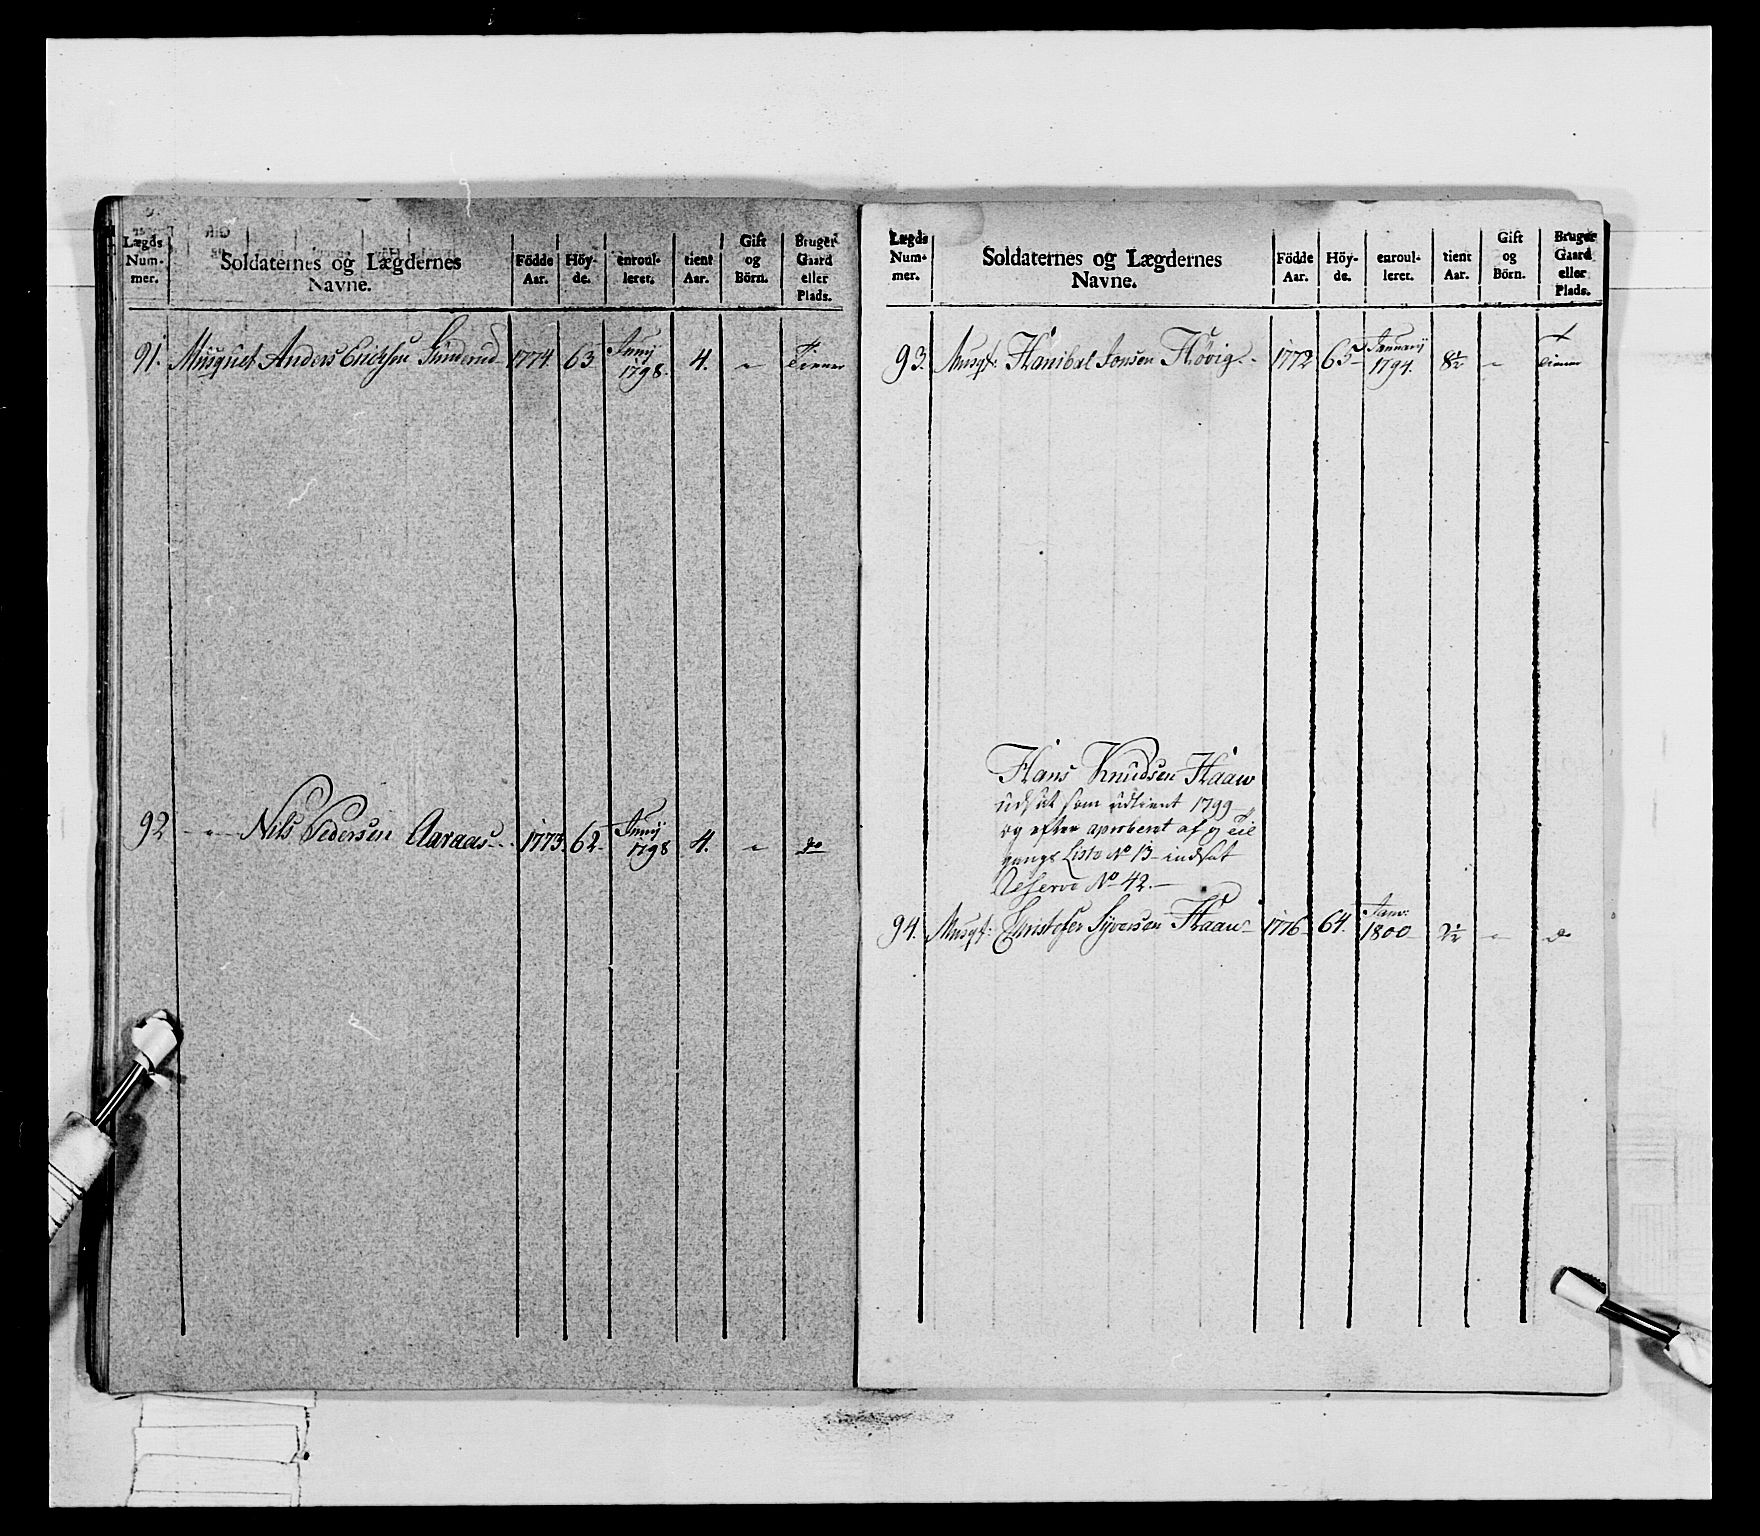 Lægds Num- mer.
Soldaternes og Lægdernes Navne.
Födde Aar.
Höy- de.
enroul- leret.
tient Aar.
Gift og Börn.
Bruger Gaard eller Plads.
91. Musquet Anders Erichsen 1774. 63 Juny 1798. 4. " Tiener
92 " Nils Pedersen Aaraas 1773. 62 Juny 1798 4. " do
Lægds Num- mer.
Soldaternes og Lægdernes Navne.
Födde Aar.
Höy- de.
enroul- leret.
tient Aar.
Gift og Börn.
Bruger Gaard eller Plads.
93. Musqt: Hanibal Jonsen Høvig 1772 65 Januarij 1794. 8½ " Tiener
Hans Knudsen Haaw
udsat som udtient 1799
og efter aproberet af og Til
gangs Liste No 13 indsat
Reserve No 42.
94. Musqt: Christofer Syversen Haaw 1776 64. Janv: 1800 2½ " do